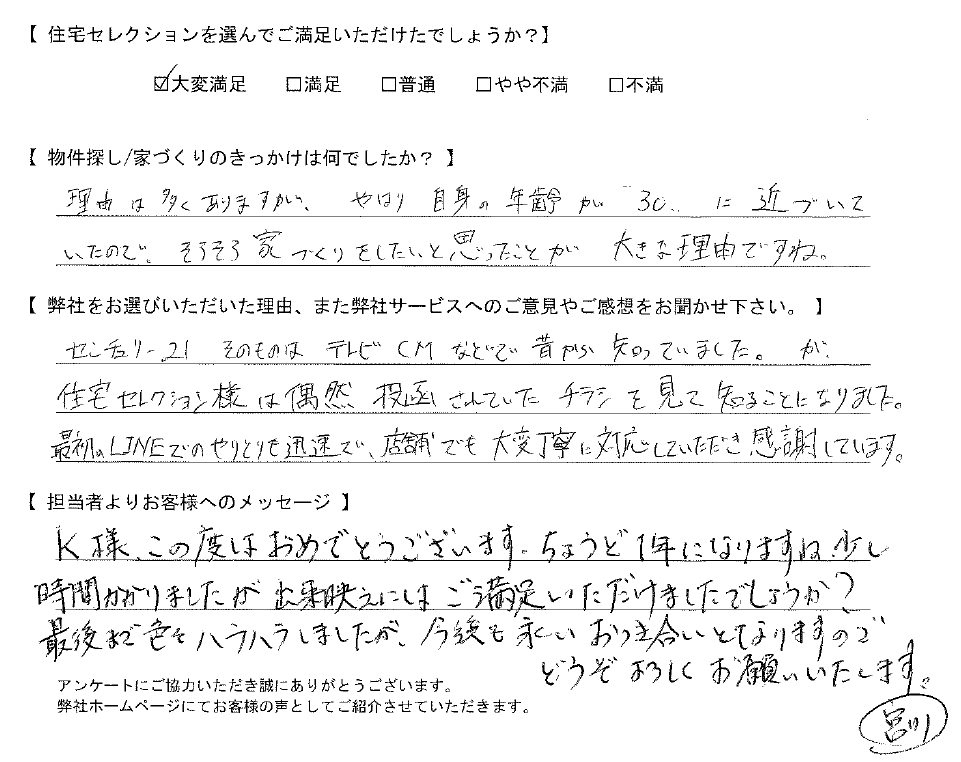 【 住宅セレクションを選んでご満足いただけたでしょうか？】
☑大変満足 □満足 □普通 □やや不満 □不満
【 物件探し/家づくりのきっかけは何でしたか？ 】
理由は多くありますが、やはり自身の年齢が 30 に近づいて
いたので、そろそろ家づくりをしたいと思ったことが 大きな理由ですね。
【 弊社をお選びいただいた理由、また弊社サービスへのご意見やご感想をお聞かせ下さい。 】
センチュリー21 そのものは テレビCMなどで昔から知っていました。が、
住宅セレクション様は偶然 投函されていたチラシを見て知ることになりました。
最初のLINEでのやりとりも迅速で、店舗でも大変丁寧に対応していただき感謝しています。
【 担当者よりお客様へのメッセージ 】
K様、この度はおめでとうございます。ちょうど1年になりますね 少し
時間かかりましたが 出来映えにはご満足いただけましたでしょうか？
最後まで色々ハラハラしましたが、今後も永いお付き合いとなりますので
どうぞよろしくお願いいたします。
アンケートにご協力いただき誠にありがとうございます。
弊社ホームページにてお客様の声としてご紹介させていただきます。
宮川